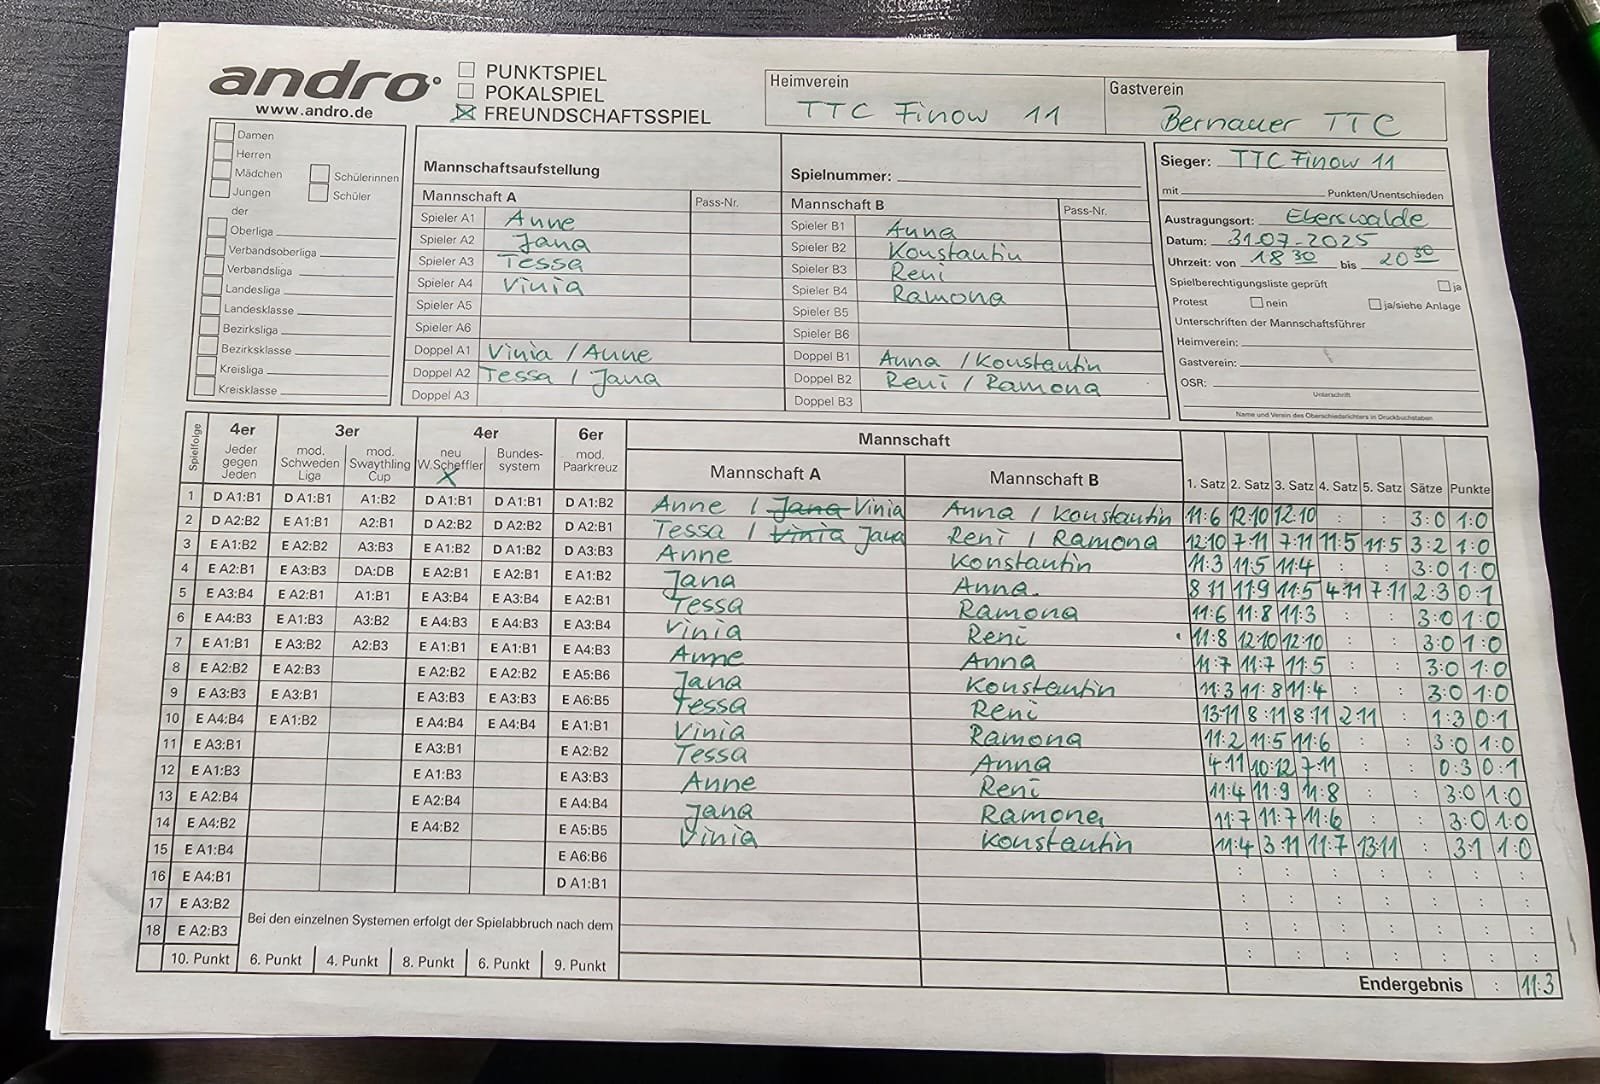 andro
www.andro.de
PUNKTSPIEL
POKALSPIEL
FREUNDSCHAFTSSPIEL
Heimverein
TTC Finow 11
Gastverein
Bernauer TTC
Damen
Herren
Mädchen Schülerinnen
Jungen Schüler
der
Oberliga
Verbandsoberliga
Verbandsliga
Landesliga
Landesklasse
Bezirksliga
Bezirksklasse
Kreisliga
Kreisklasse
Mannschaftsaufstellung
Mannschaft A Pass-Nr.
Spieler A1 Anne
Spieler A2 Jana
Spieler A3 Tessa
Spieler A4 Vinia
Spieler A5
Spieler A6
Doppel A1 Vinia / Anne
Doppel A2 Tessa / Jana
Doppel A3
Spielnummer:
Mannschaft B Pass-Nr.
Spieler B1 Anna
Spieler B2 Konstantin
Spieler B3 Reni
Spieler B4 Ramona
Spieler B5
Spieler B6
Doppel B1 Anna / Konstantin
Doppel B2 Reni / Ramona
Doppel B3
Sieger: TTC Finow 11
mit Punkten/Unentschieden
Austragungsort: Eberswalde
Datum: 31.07-2025
Uhrzeit: von 18 30 bis 20 30
Spielberechtigungsliste geprüft ja
Protest nein ja/siehe Anlage
Unterschriften der Mannschaftsführer
Heimverein:
Gastverein:
OSR:
Unterschrift
Name und Verein des Oberschiedsrichters in Druckbuchstaben
Spielfolge
4er Jeder gegen Jeden
3er
mod. Schweden Liga
mod. Swaythling Cup
4er
neu W.Scheffler X
Bundes-system
6er mod. Paarkreuz
Mannschaft
Mannschaft A Mannschaft B 1. Satz 2. Satz 3. Satz 4. Satz 5. Satz Sätze Punkte
1 D A1:B1 D A1:B1 A1:B2 D A1:B1 D A1:B1 D A1:B2 Anne / Jana Vinia Anna / Konstantin 11:6 12:10 12:10 : : 3:0 1:0
2 D A2:B2 E A1:B1 A2:B1 D A2:B2 D A2:B2 D A2:B1 Tessa / Vinia Jana Reni / Ramona 12:10 7:11 7:11 11:5 11:5 3:2 1:0
3 E A1:B2 E A2:B2 A3:B3 E A1:B2 D A1:B2 D A3:B3 Anne Konstantin 11:3 11:5 11:4 : : 3:0 1:0
4 E A2:B1 E A3:B3 DA:DB E A2:B1 E A2:B1 E A1:B2 Jana Anna 8 11 11:9 11:5 4:11 7:11 2:3 0:1
5 E A3:B4 E A2:B1 A1:B1 E A3:B4 E A3:B4 E A2:B1 Tessa Ramona 11:6 11:8 11:3 : : 3:0 1:0
6 E A4:B3 E A1:B3 A3:B2 E A4:B3 E A4:B3 E A3:B4 Vinia Reni 11:8 12:10 12:10 : : 3:0 1:0
7 E A1:B1 E A3:B2 A2:B3 E A1:B1 E A1:B1 E A4:B3 Anne Anna 11:7 11:7 11:5 : : 3:0 1:0
8 E A2:B2 E A2:B3 E A2:B2 E A2:B2 E A5:B6 Jana Konstantin 11:3 11:8 11:4 : : 3:0 1:0
9 E A3:B3 E A3:B1 E A3:B3 E A3:B3 E A6:B5 Tessa Reni 13:11 8:11 8:11 2:11 : 1:3 0:1
10 E A4:B4 E A1:B2 E A4:B4 E A4:B4 E A1:B1 Vinia Ramona 11:2 11:5 11:6 : : 3:0 1:0
11 E A3:B1 E A3:B1 E A2:B2 Tessa Anna 4:11 10:12 7:11 : : 0:3 0:1
12 E A1:B3 E A1:B3 E A3:B3 Anne Reni 11:4 11:9 11:8 : : 3:0 1:0
13 E A2:B4 E A2:B4 E A4:B4 Jana Ramona 11:7 11:7 11:6 : : 3:0 1:0
14 E A4:B2 E A4:B2 E A5:B5 Vinia Konstantin 11:4 3:11 11:7 13:11 : 3:1 1:0
15 E A1:B4 E A6:B6 : : : : : : :
16 E A4:B1 D A1:B1 : : : : : : :
17 E A3:B2 : : : : : : :
18 E A2:B3 : : : : : : :
Bei den einzelnen Systemen erfolgt der Spielabbruch nach dem
10. Punkt 6. Punkt 4. Punkt 8. Punkt 6. Punkt 9. Punkt
Endergebnis : 11:3